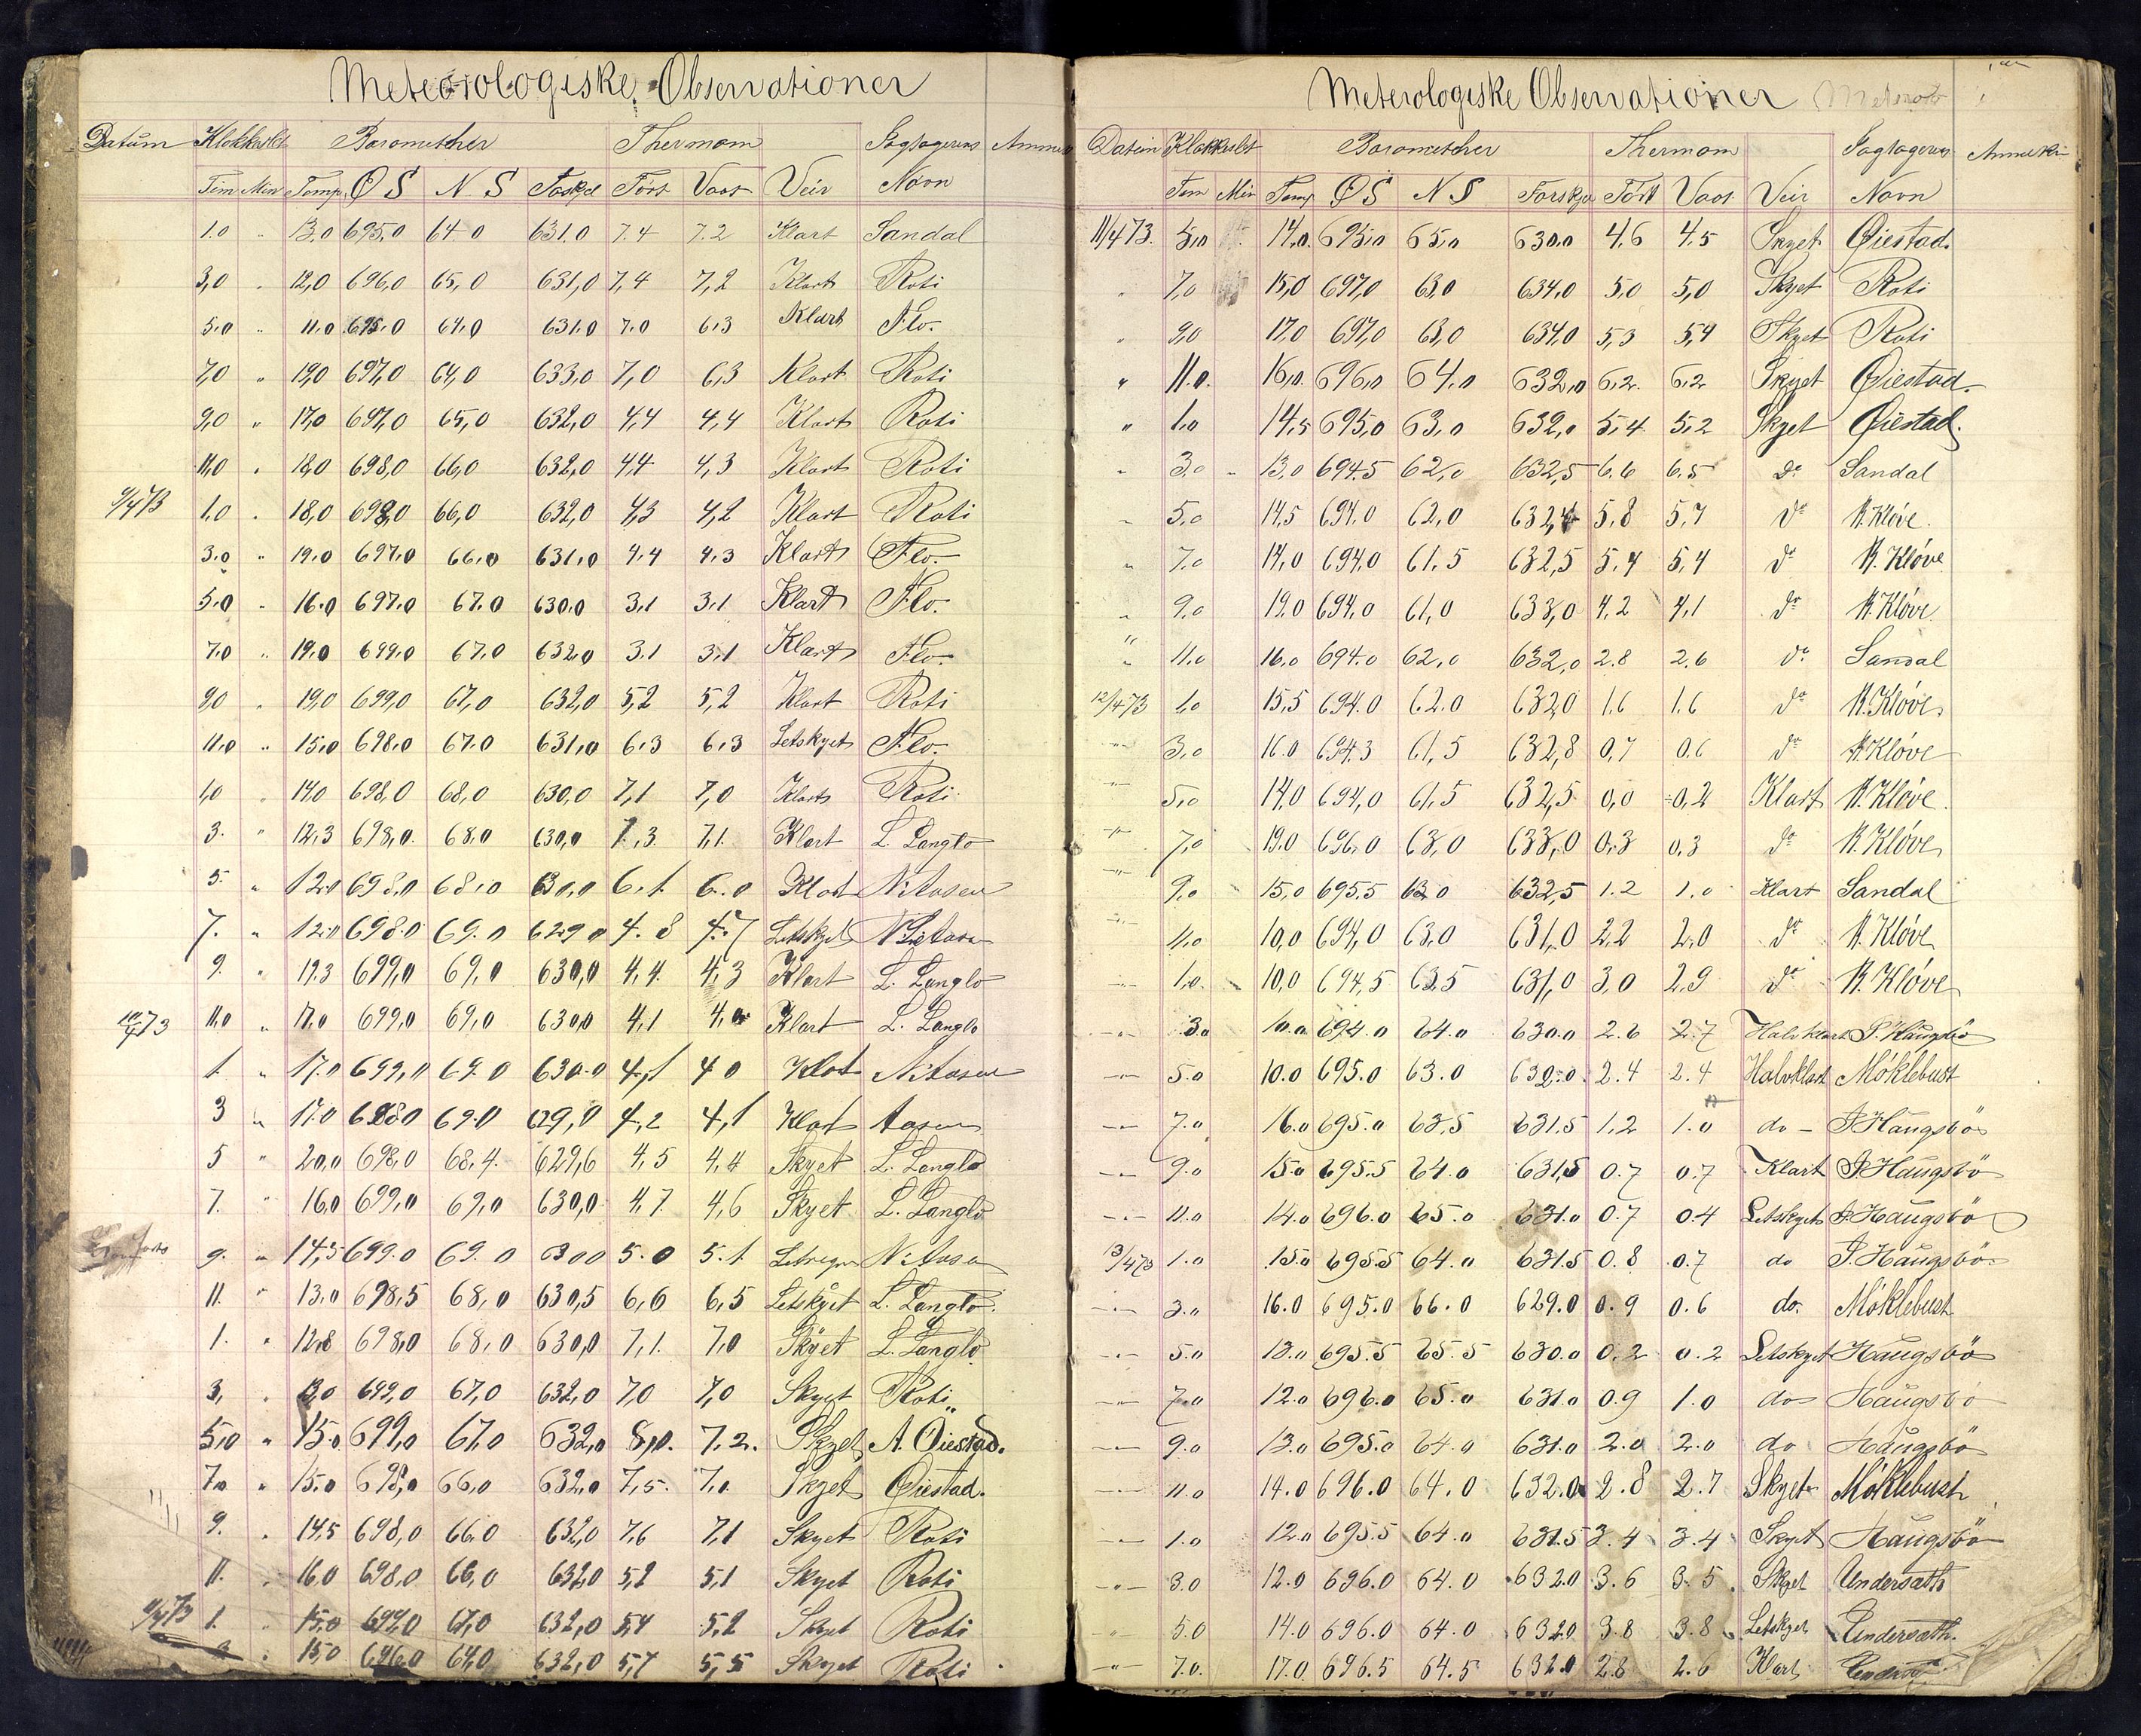 Meteorologiske Observationer
Datum Klokkeslet Baromether Thermom Iagtagerens Anmer
Tim Min Temp Ø S N S Forskjel Tört Vaat Veir Navn
1.0 " 13.0 695.0 64 0 631.0 7.4 7.2 Klart Sandal
3,0 " 12,0 696,0 65,0 631,0 7,4 7,2 Klart Roti
5.0 " 11.0 695.0 64.0 631.0 7.0 6.3 Klart Flo.
7,0 " 19,0 697,0 64,0 633,0 7,0 6,3 Klart Roti
9,0 " 17,0 697,0 65,0 632,0 4,4 4,4 Klart Roti
11,0 " 18,0 698,0 66,0 632,0 4,4 4,3 Klart Roti
9/4 73 1,0 " 18,0 698,0 66,0 632,0 4,3 4,2 Klart Roti
3.0 " 19.0 697.0 66.0 631.0 4.4 4.3 Klart Flo.
5.0 " 16.0 697.0 67.0 630.0 3.1 3.1 Klart Flo.
7.0 " 19.0 699.0 67.0 632.0 3.1 3.1 Klart Flo.
9,0 " 19,0 699,0 67,0 632,0 5,2 5,2 Klart Roti
11.0 " 15.0 698.0 67.0 631.0 6.3 6.3 Letskyet Flo.
1,0 " 14,0 698,0 68,0 630,0 7,1 7,0 Klart Roti
3. " 12,3 698,0. 68,0 630,0 7,3. 7,1. Klart L. Langlo
5. " 12.0 698.0 68.0 630.0 6.1. 6.0 Klart N. Aasen
7. " 12.0 698.0 69.0 629 0 4.8 4.7 Letskyet N Aasen
9. " 19.3 699,0 69,0 630,0 4,4. 4,3 Klart L. Langlo
10/4 73 11,0 " 17,0 699,0 69,0 630,0 4,1 4,0 Klart L. Langlo
1. " 17.0 699,0 69.0 630.0 4,1 4 0 Klat N. Aasen
3 " 17.0 698 0 69.0 629,0 4,2 4,1 Klat Aasen
5 " 20,0 698,0 68,4. 629,6 4,5 4,4 Skyet L. Langlo
7. " 16,0 699,0 69,0 630,0 4,7. 4,6 Skyet L. Langlo
9. " 14,5 699.0 69.0 6300 5.0 5.1 Letregn N. Aasen
11. " 13,0 698,5 68,0 630,5 6,6 6,5 Letskyet L. Langlo.
1. " 12,8 698,0 68,0 630,0 7,1. 7,0 Skyet L. Langlo.
3, " 13,0 699,0 67,0 632,0 7,0 7,0 Skyet Roti
5,0 " 15.0 699,0 67,0 632,0 8,0. 7,2. Skyet A. Oiestad.
7,0 " 15.0 698,0 66,0 632,0 7,5. 7,0. Skyet Oiestad.
9. " 14,5 698,0 66,0 632,0 7,6 7,1 Skyet Roti
11. " 16,0 698,0 66,0 632,0 5,2 5,1 Skyet Roti
11/4 73 1. " 15,0 699,0 67,0 632,0 5,4 5,2 Skyet Roti
3 " 15,0 696,0 64,0 632,0 5,7 5,5 Skyet Roti
Meterologiske Observationer
Datum Klokkeslet Baromether Thermom Iagtagerens
Tim Min Temp ØS N S Forskjel Tört Vaat Veir Navn
11/4 73. 5,0 14,0. 695,0 65,0 630,0 4,6 4,5 Skyet Oiestad.
" 7,0 15,0 697,0 63,0 634,0 5,0 5,0 Skyet Roti
" 9,0 17,0 697,0 63,0 634,0 5,3 5,4 Skyet Roti
" 11.0. 16,0. 696,0 64,0 632,0 6,2. 6,2 Skyet Oiestad.
" 1,0 14,5 695,0 63,0 632,0 5,4 5,2 Skyet Oiestad.
" 3.0 " 13.0 694.5 62,0 632,5 6.6 6.5 do Sandal
" 5.0 14,5 694.0 62,0 632,4 5,8 5,7 do K. Klöve.
" 7.0 14,0 694,0 61,5 632,5 5,4 5,4 do K. Klöve
" 9.0 19.0 694.0 61,0 633,0 4.2 4,1 do K. Klöve
" 11.0 16.0 694.0 62,0 632,0 2.8 2.6 do. Sandal
12/4 73 1.0 15,5 694.0 62.0 632,0 1.6 1.6 do K. Klöve
" 3.0 16.0 694.3 61,5 632,8 0,7 0.6 do K. Klöve
" 5.0 14,0 694,0 61,5 632,5 0,0 ÷0,2 Klart K. Klöve.
" 7,0 19.0 696,0 63,0 633,0 0,3 0,3 do K. Klöve
" 9.0 15.0 695.5 63 0 632,5 1.2 1.0 Klart Sandal
" 11.0 10,0 694,0 63,0 631,0 2,2 2,0 do K. Klöve
" 1,0 10,0 694,5 63,5 631,0 3,0 2,9 do K. Klöve
" 3.0 10.0 694.0 64.0 630.0 2.6 2.7 Halvklart S. Haugsbö
" 5.0 10.0 695.0 63.0 632.0 2.4 2.4 Halvklart Möklebust
" 7.0 16.0 695.0 63,5 631.5 1,2 1.0 do " S Haugsbö
" 9.0 15.0 695.5 64.0 631,5 0.7 0.7 Klart S. Haugsbö
" 11.0 14.0 696.0 65.0 631.0 0.7 0.4 Letskyet S. Haugsbö
13/4 73 1.0 15.0 695.5 64.0 631.5 0.8 0.7 do S. Haugsbö
" 3.0 16.0 695.0 66.0 629.0 0.9 0.6 do. Möklebust
" 5.0 13.0 695.5 65.5 630.0 0.2 0.2 Letskyet Haugsbö
" 7.0 12.0 696.0 65.0 631.0 0.9 1.0 do Haugsbö
" 9.0 13.0 695.0 64.0 631.0 2.0 2.0 do Haugsbö
" 11.0 14.0 696.0 64.0 632.0 2.8 2.7 Skyet Möklebust
" 1.0 12.0 695.5 64.0 631.5 3.4 3.4 Skyet Haugsbö
" 3.0 12.0 696.0 64.0 632.0 3.6 3.5 Skyet Undersath
" 5.0 14.0 696.0 64.0 632.0 3.8 3.8 Letskyet Undersath.
" 7.0. 17.0 696.5 64.5 632.0 2.8 2.6 Klart